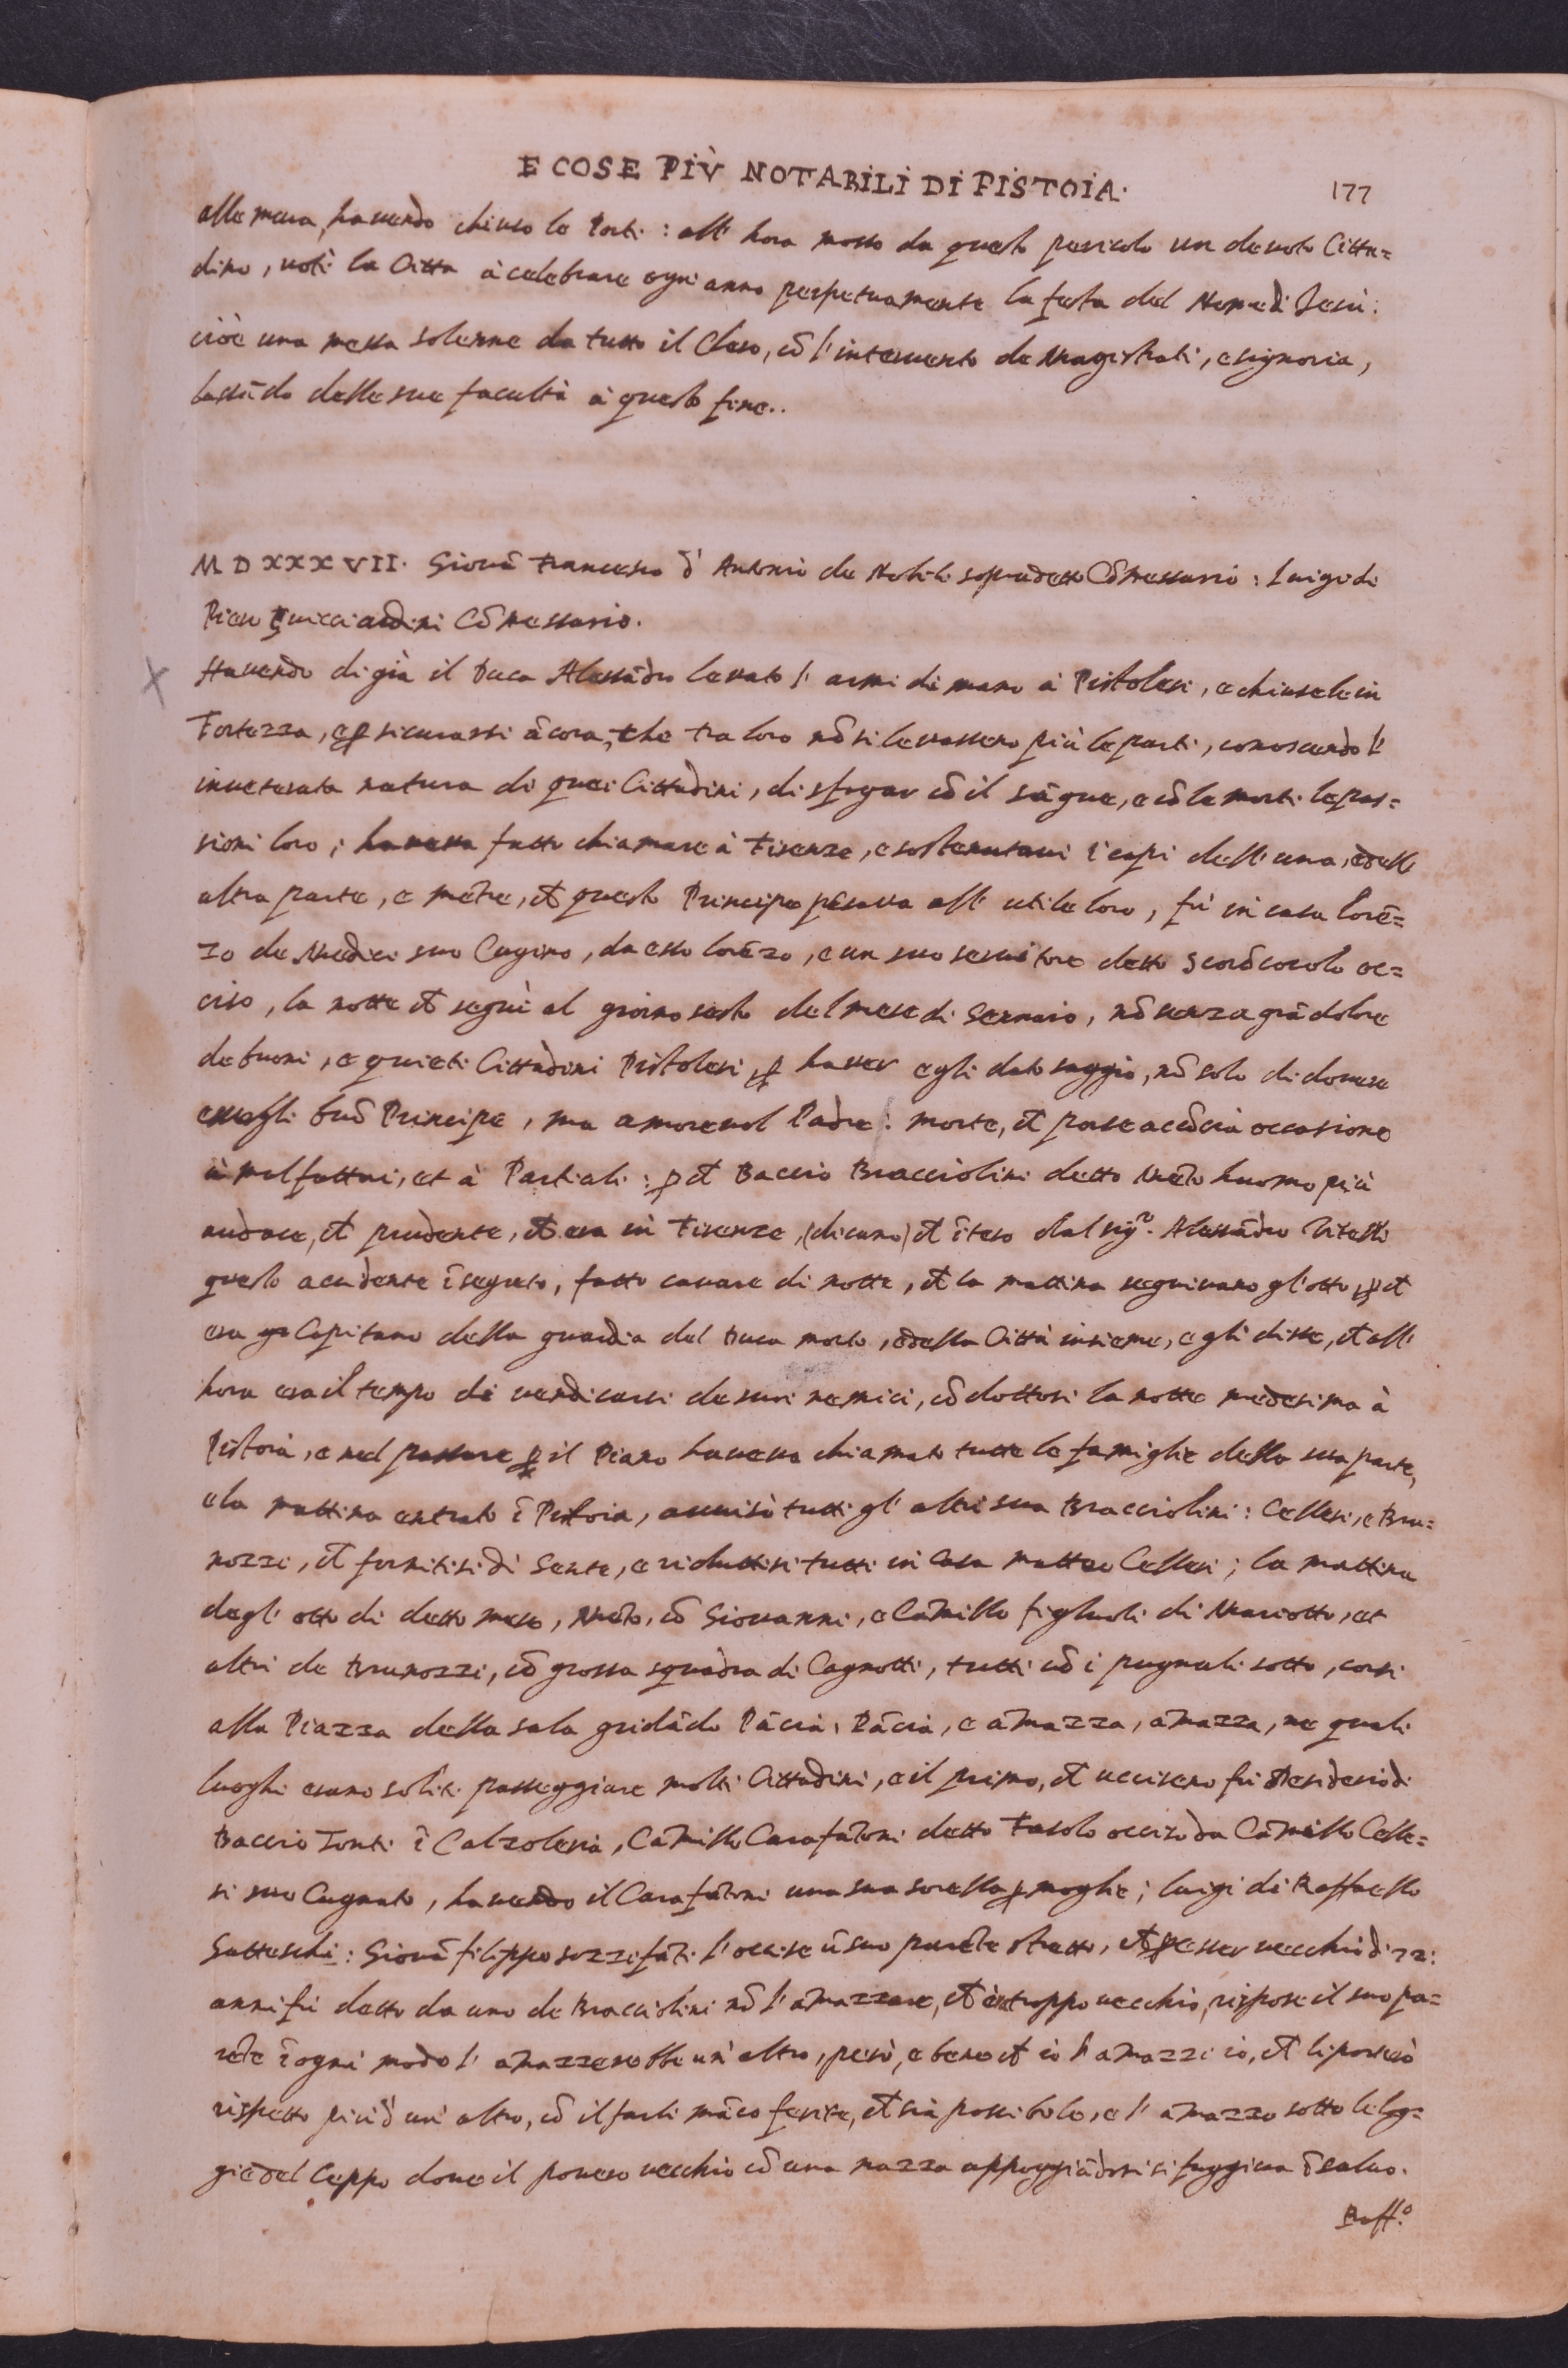 E COSE PIÙ NOTABILI DI PISTOIA.
177
alle mura, havendo chiuso le Porte: all' hora mosso da questo pericolo un devoto Citta=
dino, votò la Città à celebrare ogni anno perpetuamente la festa del Nome di Jesù:
cioè una messa solenne da tutto il Clero, cõ l'intervento de Magistrati, e signoria,
lassãdo delle sue facultà à questo fine..
MDXXXVII. Giovã Francesco d' Antonio de Nobili sopradetto Cõmessario: Luigi di
Piero Guicciardini Cõmessario.
Havendo di già il Duca Alessãdro levato l' armi di mano à Pistolesi, e chiusele in
Fortezza, e ꝑ sicurassi ãcora, che tra loro nõ si levassero più le parti, conoscendo l'
inveterata natura di quei Cittadini, di sfogar cõ il sãgue, e cõ le morti le pas=
sioni loro; haveva fatto chiamare à Firenze, e sostenutovi i capi dell' una, e dell'
altra parte, e mẽtre, ch̃ questo Principe pẽsava all' utile loro, fù in casa Lorẽ=
zo de Medici suo Cugino, da esso Lorẽzo, e un suo servitore detto Scorõcocolo oc=
ciso, la notte ch̃ seguì al giorno sesto del mese di Gennaio, nõ senza grã dolore
de buoni, e quieti Cittadini Pistolesi, ꝑ haver egli dato saggio, nõ solo di dovere
essergli buõ Principe, ma amorevol Padre: morte, ch̃ porse acõcia occasione
à malfattori, et à Partiali: ꝑ ch̃ Baccio Bracciolini detto huomo più
audace, ch̃ prudente, ch̃ era in Firenze, (dicano) ch̃ ĩteso dal sigʳ. Alessãdro Vitelli
questo accidente ĩ segreto, fatto cavare di notte, ch̃ la mattina seguivano gl'otto, ꝑ ch̃
era Capitano della guardia del Duca morto, e della Città insieme, e gli disse, ch̃ all'
hora era il tempo di vendicarsi de suoi nemici, cõdottosi la notte medesima à
Pistoia, e nel passare ꝑ il Piano haveva chiamato tutte le famiglie della sua parte,
e la mattina entrato ĩ Pistoia, avvisò tutti gl' altri sua Bracciolini: Cellesi, e Bru=
nozzi, ch̃ fornitisi di Gente, e riduttisi tutti in Casa Matteo Cellesi; la mattina
degl' otto di detto mese, cõ Giovanni, e Camillo figliuoli di Mariotto, et
altri de Brunozzi, cõ grossa squadra di Cagnotti, tutti cõ i pugnali sotto, corsi
alla Piazza della sala gridãdo Pãcia, Pãcia, e amazza, amazza, ne quali
luoghi erano soliti passeggiare molti Cittadini, e il primo, ch̃ uccisero fù Desiderio di
Baccio Tonti ĩ Calzoleria, Camillo Carafãtoni detto Fasolo occiso da Camillo Celle=
si suo Cugnato, havendo il Carafãtoni una sua sorella ꝑ moglie; Luigi di Raffaello
Gatteschi: Giovã filippo sozzifãti l'occise ũ suo parẽte stretto, ch̃ ꝑ esser vecchio di 72:
anni fù detto da uno de Bracciolini nõ l' amazzare, ch̃ è troppo vecchio, rispose il suo pa=
rẽte ĩ ogni modo l' amazzerebbe un' altro, però, e bene ch̃ io l' amazzi io, ch̃ li porterò
rispetto più d' un' altro, cõ il farli mãco ferite, ch̃ sia possibile, e l' amazzò sotto le log=
gie del Ceppo dove il povero vecchio cõ una mazza appoggiãdosi si fuggiva ĩ salvo.
Raff.º